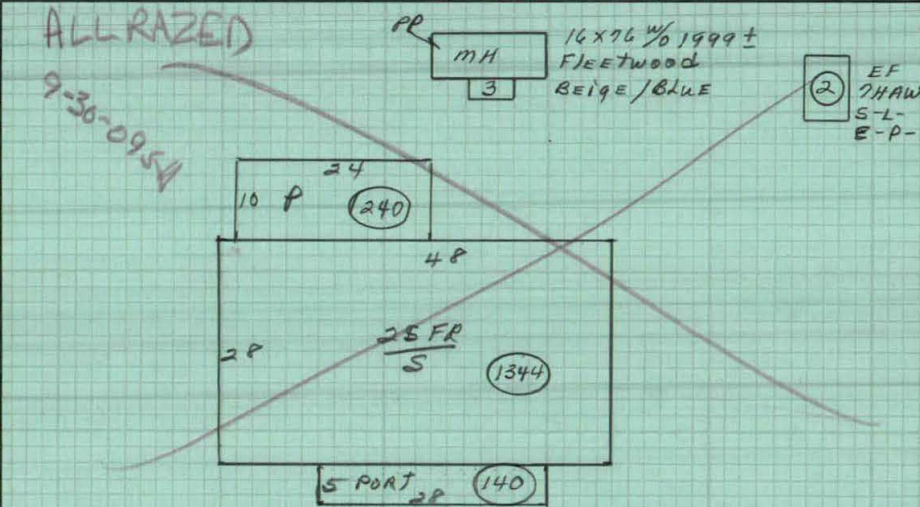 ALL RAZED
9-30-09
PP
MH
3
16x76 W/O 1999 ±
Fleetwood
Beige/Blue
2
EF
S-L-
E-P-
24
10 P 240
48
28
2S FR
S
1344
5 PORT 28 140